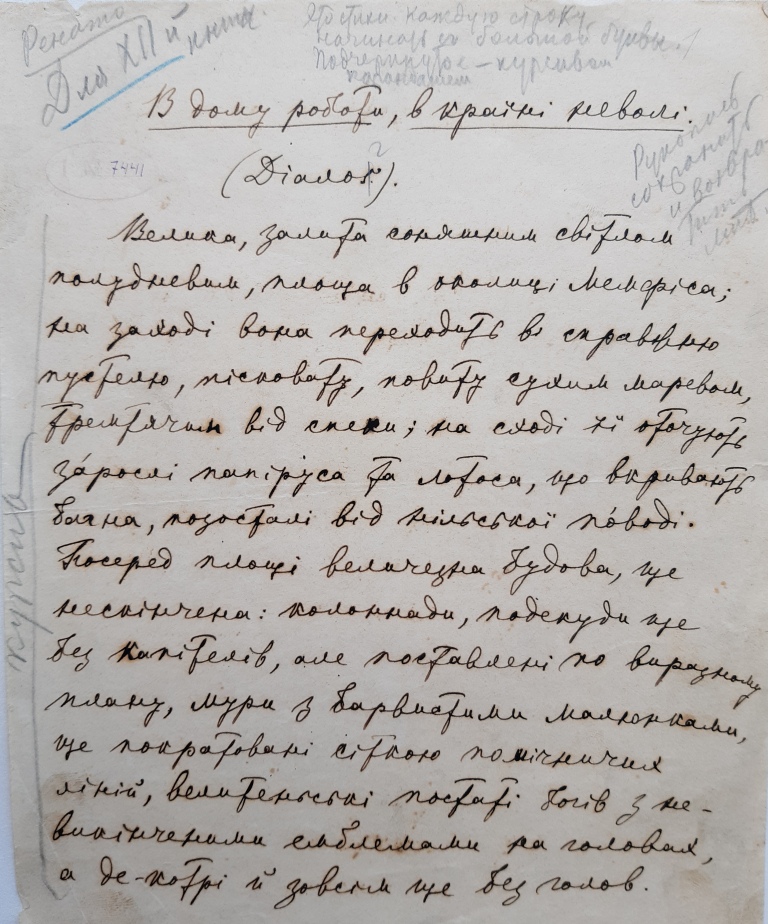 Для XII й книги.
Это стихи. Каждую строку
начинать с большой буквы.
Подчеркнутое – курсивом
В дому роботи, в країні неволі.
7441
(Діалог).
Рукопись
сохранить
и
курсив
Велика, залита соняшним світлом
полудневим, площа в околиці Мемфіса;
на заході вона переходить в справжню
пустелю, пісковату, повиту сухим маревом,
тремтячим від спеки; на сході її оточують
за́рослі папіруса та лотоса, що вкривають
багна, позосталі від нільської по́води.
Посеред площі величезна будова, ще
нескінчена: колоннади, подекуди ще
без капітелів, але поставлені по виразному
плану, мури з барвистими малюнками,
ще пократовані сіткою помічничих
ліній, велитенські постаті богів з не-
викінченими емблемами на головах,
а де-котрі й зовсім ще без голов.